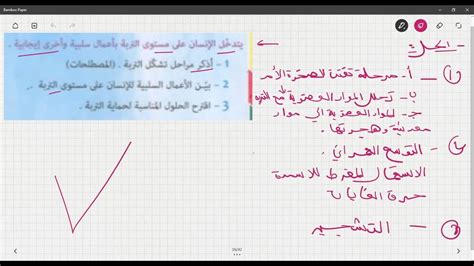 Bamboo Paper
يتدخّل الإنسان على مستوى التربة بأعمال سلبية وأخرى إيجابية .
1 - أذكر مراحل تشكّل التربة. (المصطلحات)
2 - بيّن الأعمال السلبية للإنسان على مستوى التربة .
3 - اقترح الحلول المناسبة لحماية التربة.
الحل :
1 أ- مرحلة تفتت الصخرة الأم
ب- تحلل المواد العضوية
ج- المواد العضوية إلى مواد
معدنية وهجرتها.
2 - التوسع العمراني .
الاستعمال المفرط للأسمدة
حرق الغابات
3 - التشجير